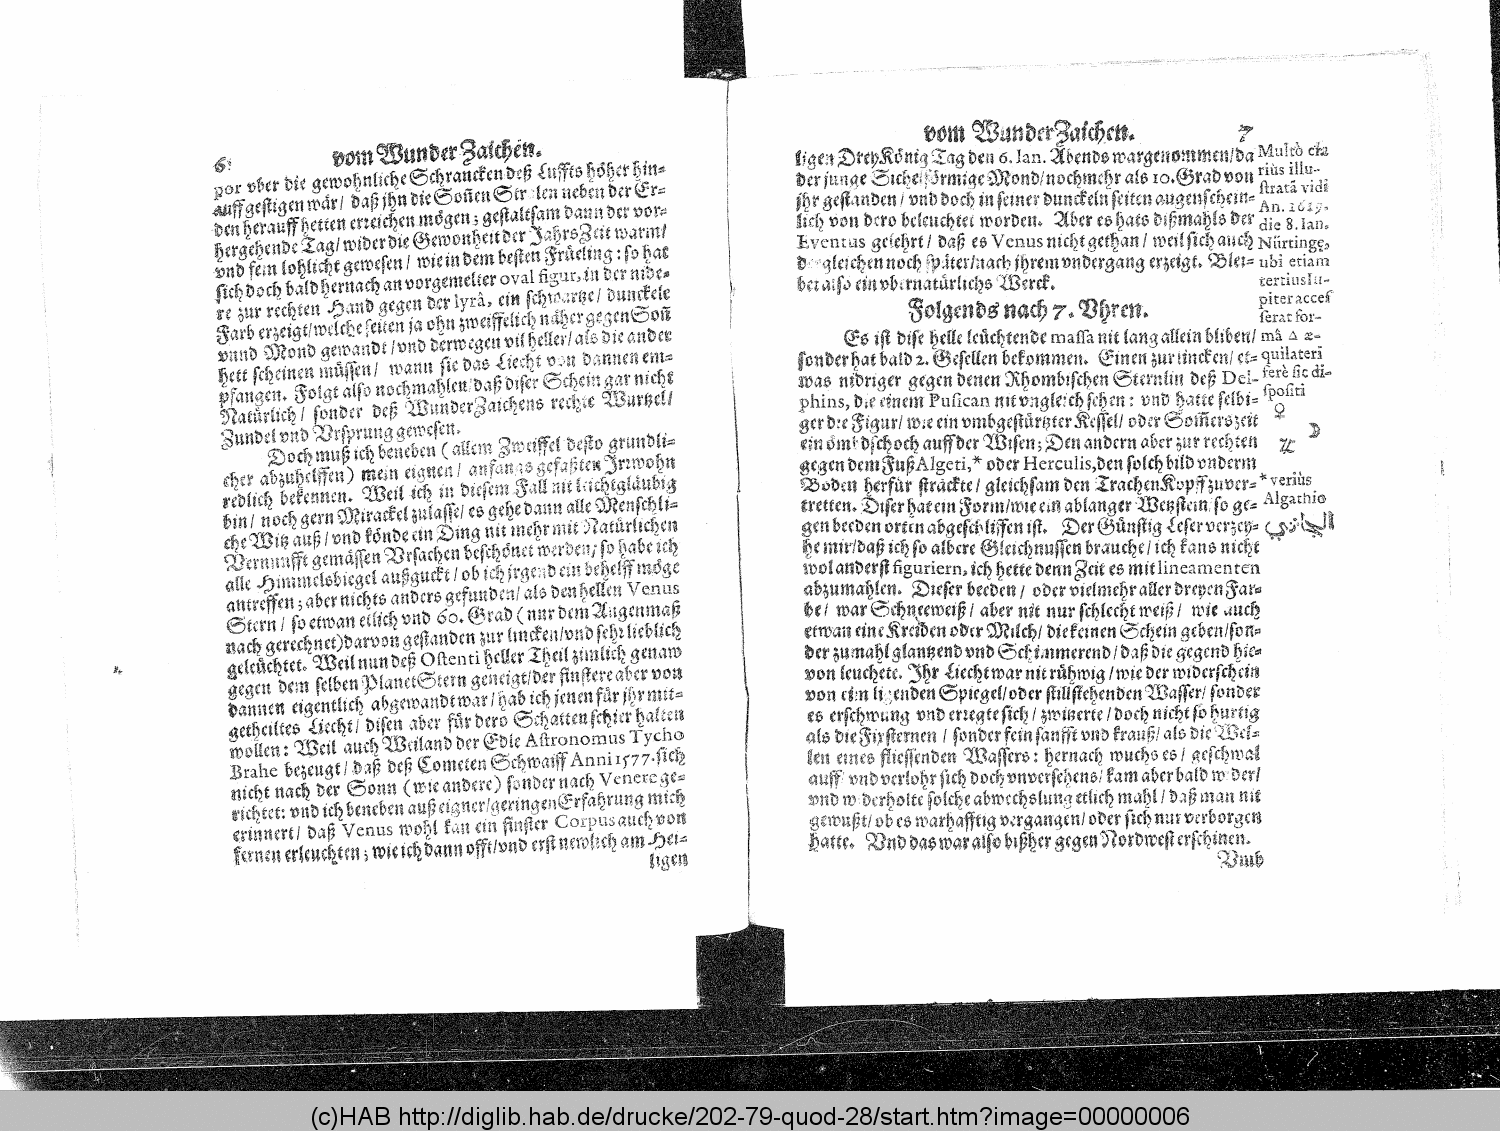 6
vom WunderZaichen.
por vber die gewohnliche Schrancken deß Luffts höher hin-
auff gestigen wär/ daß jhn die Soñen Stralen neben der Er-
den herauff hetten erreichen mögen; gestaltsam dann der vor-
hergehende Tag/ wider die Gewonheit der JahrsZeit warm/
vnd fein lohlicht gewesen/ wie in dem besten Früeling: so hat
sich doch bald hernach an vorgemelter oval figur, in der nide-
re zur rechten Hand gegen der lyrâ, ein schwartze/ dunckele
Farb erzeigt/ welche seiten ja ohn zweiffelich näher gegen Soñ
vnnd Mond gewandt/ vnd derwegen vil heller/ als die ander
hett scheinen müssen/ wann sie das Liecht von dannen em-
pfangen. Folgt also nochmahlen/ daß diser Schein gar nicht
Natürlich/ sonder deß WunderZaichens rechte Wurtzel/
Zundel vnd Vrsprung gewesen.
Doch muß ich beneben (allem Zweiffel desto gründli-
cher abzuhelffen) mein eignen/ anfangs gefaßten Irrwohn
redlich bekennen. Weil ich in diesem Fall nit leichtgläubig
bin/ noch gern Mirackel zulasse/ es gehe dann alle Menschli-
che Witz auß/ vnd könde ein Ding nit mehr mit Natürlichen
Vernunfft gemässen Vrsachen beschönet werden; so habe ich
alle Himmelsbiegel außguckt/ ob ich jrgend ein behelff möge
antreffen; aber nichts anders gefunden/ als den hellen Venus
Stern/ so etwan etlich vnd 60. Grad (nur dem Augenmaß
nach gerechnet) darvon gestanden zur lincken/ vnd sehr lieblich
geleüchtet. Weil nun deß Ostenti heller Theil zimlich genaw
gegen dem selben PlanetStern geneigt/ der finstere aber von
dannen eigentlich abgewandt war/ hab ich jenen für jhr mit-
getheiltes Liecht/ disen aber für dero Schatten schier halten
wollen: Weil auch Weiland der Edle Astronomus Tycho
Brahe bezeugt/ daß deß Cometen Schwaiff Anni 1577. sich
nicht nach der Sonn (wie andere) sonder nach Venere ge-
richtet: vnd ich beneben auß eigner/ geringen Erfahrung mich
erinnert/ daß Venus wohl kan ein finster Corpus auch von
fernen erleuchten; wie ich dann offt/ vnd erst newlich am Hei-
ligen
vom WunderZaichen.
7
ligen DreyKönig Tag den 6. Ian. Abends wargenommen/ da
der junge Sichelförmige Mond/ nochmehr als 10. Grad von
jhr gestanden/ vnd doch in seiner dunckeln seiten augenschein-
lich von dero beleuchtet worden. Aber es hats dißmahls der
Eventus gelehrt/ daß es Venus nicht gethan/ weil sich auch
dergleichen noch später/ nach jhrem vndergang erzeigt. Blei-
bet also ein vbernatürlichs Werck.
Folgends nach 7. Vhren.
Es ist dise helle leüchtende massa nit lang allein bliben/
sonder hat bald 2. Gesellen bekommen. Einen zur lincken/ et-
was nidriger gegen denen Rhombischen Sternlin deß Del-
phins, die einem Pusican nit vngleich sehen: vnd hatte selbi-
ger die Figur/ wie ein vmbgestürtzter Kessel/ oder Som̃erszeit
ein ömbdschoch auff der Wisen; Den andern aber zur rechten
gegen dem Fuß Algeti,* oder Herculis, den solch bild vnderm
Boden herfür strackte/ gleichsam den Trachen Kopff zuver-
tretten. Diser hat ein Form/ wie ein ablanger Wetzstein/ so ge-
gen beeden orten abgeschliffen ist. Der Günstig Leser verzey-
he mir/ daß ich so albere Gleichnussen brauche/ ich kans nicht
wol anderst figuriern, ich hette denn Zeit es mit lineamenten
abzumahlen. Dieser beeden/ oder vielmehr aller dreyen Far-
be/ war Schneeweiß/ aber nit nur schlecht weiß/ wie auch
etwan eine Kreiden oder Milch/ die keinen Schein geben/ son-
der zumahl glantzend vnd Schimmerend/ daß die gegend hie-
von leuchete. Ihr Liecht war nit rühwig/ wie der widerschein
von eim ligenden Spiegel/ oder stillstehenden Wasser/ sonder
es erschwung vnd erregte sich/ zwitzerte/ doch nicht so hurtig
als die Fixsternen/ sonder fein sanfft vnd krauß/ als die Wel-
len eines fliessenden Wassers: hernach wuchs es/ geschwal
auff vnd verlohr sich doch vnversehens/ kam aber bald wider/
vnd widerholte solche abwechslung etlich mahl/ daß man nit
gewußt/ ob es warhafftig vergangen/ oder sich nur verborgen
hatte. Vnd das war also bißher gegen Nordwest erschinen.
Vmb
Multò cla
rius illu-
stratã vidi
An. 1619.
die 8. Ian.
Nürtingę,
ubi etiam
tertius Iu-
piter acces
serat for-
mâ △ æ-
quilateri
ferè sic di-
spositi
♀
☽
♃
* veriùs
Algathio
(c)HAB http://diglib.hab.de/drucke/202-79-quod-28/start.htm?image=00000006